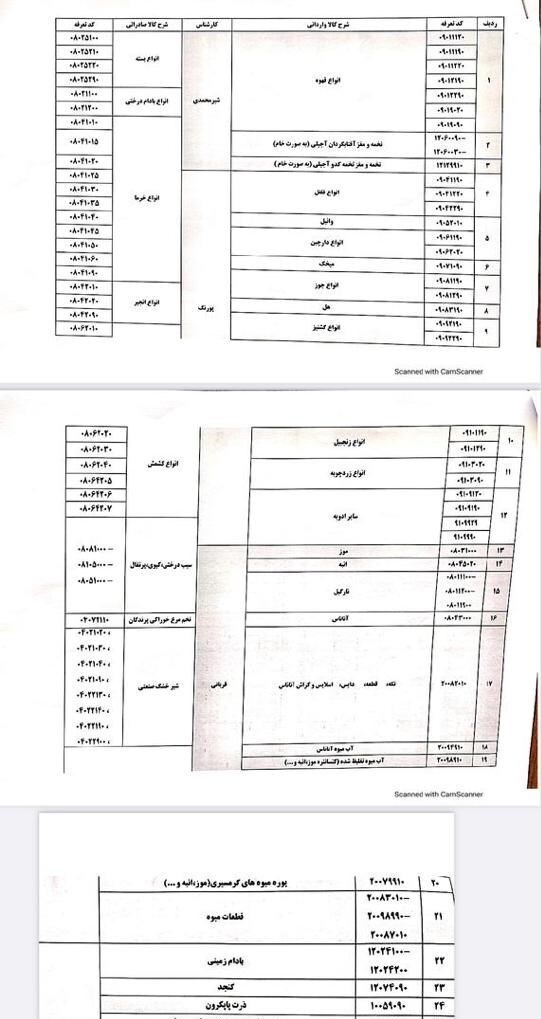 ردیف کد تعرفه شرح کالا وارداتی کارشناس شرح کالا صادراتی کد تعرفه
۱ ۰۹۰۱۱۱۲۰ انواع قهوه شیرمحمدی انواع پسته ۰۸۰۲۵۱۰۰
۰۹۰۱۱۱۹۰ ۰۸۰۲۵۲۱۰
۰۹۰۱۱۲۲۰ ۰۸۰۲۵۲۲۰
۰۹۰۱۲۱۹۰ ۰۸۰۲۵۲۹۰
۰۹۰۱۲۲۹۰ انواع بادام درختی ۰۸۰۲۱۱۰۰
۰۹۰۱۹۰۲۰ ۰۸۰۲۱۲۰۰
۰۹۰۱۹۰۹۰ انواع خرما ۰۸۰۴۱۰۱۰
۲ ۱۲۰۶۰۰۹۰– تخمه و مغز آفتابگردان آجیلی (به صورت خام) ۰۸۰۴۱۰۱۵
۱۲۰۶۰۰۳۰–
۳ ۱۲۱۲۹۹۱۰ تخمه و مغز تخمه کدو آجیلی (به صورت خام) ۰۸۰۴۱۰۲۰
۴ ۰۹۰۴۱۱۹۰ انواع فلفل پورنگ ۰۸۰۴۱۰۲۵
۰۹۰۴۱۲۲۰ ۰۸۰۴۱۰۳۰
۰۹۰۴۲۲۹۰ ۰۸۰۴۱۰۳۵
۵ ۰۹۰۵۲۰۱۰ وانیل ۰۸۰۴۱۰۴۰
۰۹۰۶۱۱۹۰ انواع دارچین ۰۸۰۴۱۰۴۵
۰۹۰۶۲۰۲۰ ۰۸۰۴۱۰۵۰
۶ ۰۹۰۷۱۰۹۰ میخک ۰۸۰۴۱۰۶۰
۷ ۰۹۰۸۱۱۹۰ انواع جوز ۰۸۰۴۱۰۹۰
۰۹۰۸۱۲۹۰ انواع انجیر ۰۸۰۴۲۰۱۰
۸ ۰۹۰۸۳۱۹۰ هل ۰۸۰۴۲۰۲۰
۹ ۰۹۰۹۲۱۹۰ انواع گشنیز ۰۸۰۴۲۰۹۰
۰۹۰۹۲۲۹۰ ۰۸۰۶۲۰۱۰
Scanned with CamScanner
۱۰ ۰۹۱۰۱۱۹۰ انواع زنجبیل انواع کشمش ۰۸۰۶۲۰۲۰
۰۹۱۰۱۲۹۰ ۰۸۰۶۲۰۳۰
۱۱ ۰۹۱۰۳۰۲۰ انواع زردچوبه ۰۸۰۶۲۰۴۰
۰۹۱۰۳۰۹۰ ۰۸۰۶۲۲۰۵
۱۲ ۰۹۱۰۹۱۲۰ سایر ادویه ۰۸۰۶۲۲۰۶
۰۹۱۰۹۱۹۰ ۰۸۰۶۲۲۰۷
۹۱۰۹۹۲۹
۹۱۰۹۹۹۰
۱۳ ۰۸۰۳۱۰۰۰ موز قربانی سیب درختی،کیوی،پرتقال ۰۸۰۸۱۰۰۰–
۱۴ ۰۸۰۴۵۰۲۰ انبه ۰۸۱۰۵۰۰۰–
۱۵ ۰۸۰۱۱۱۰۰– نارگیل ۰۸۰۵۱۰۰۰–
۰۸۰۱۱۲۰۰–
۰۸۰۱۱۹۰۰
۱۶ ۰۸۰۴۳۰۰۰ آناناس تخم مرغ خوراکی پرندگان ۰۴۰۷۲۱۱۰
۱۷ ۲۰۰۸۲۰۱۰ تکه، قطعه، دایس، اسلایس و کراش آناناس شیر خشک صنعتی ۰۴۰۲۱۰۲۰،
۰۴۰۲۱۰۳۰،
۰۴۰۲۱۰۴۰،
۰۴۰۲۱۰۹۰،
۰۴۰۲۲۱۳۰،
۰۴۰۲۲۱۴۰،
۰۴۰۲۲۱۹۰،
۰۴۰۲۲۹۰۰،
۱۸ ۲۰۰۹۴۹۱۰ آب میوه آناناس
۱۹ ۲۰۰۹۸۹۱۰ آب میوه تغلیظ شده (کنسانتره موز،انبه و...)
Scanned with CamScanner
۲۰ ۲۰۰۷۹۹۱۰ پوره میوه های گرمسیری(موز،انبه و ...)
۲۱ ۲۰۰۸۳۰۱۰– قطعات میوه
۲۰۰۹۸۹۹۰–
۲۰۰۸۷۰۱۰
۲۲ ۱۲۰۲۴۱۰۰– بادام زمینی
۱۲۰۲۴۲۰۰
۲۳ ۱۲۰۷۴۰۹۰ کنجد
۲۴ ۱۰۰۵۹۰۹۰ ذرت پاپکرون